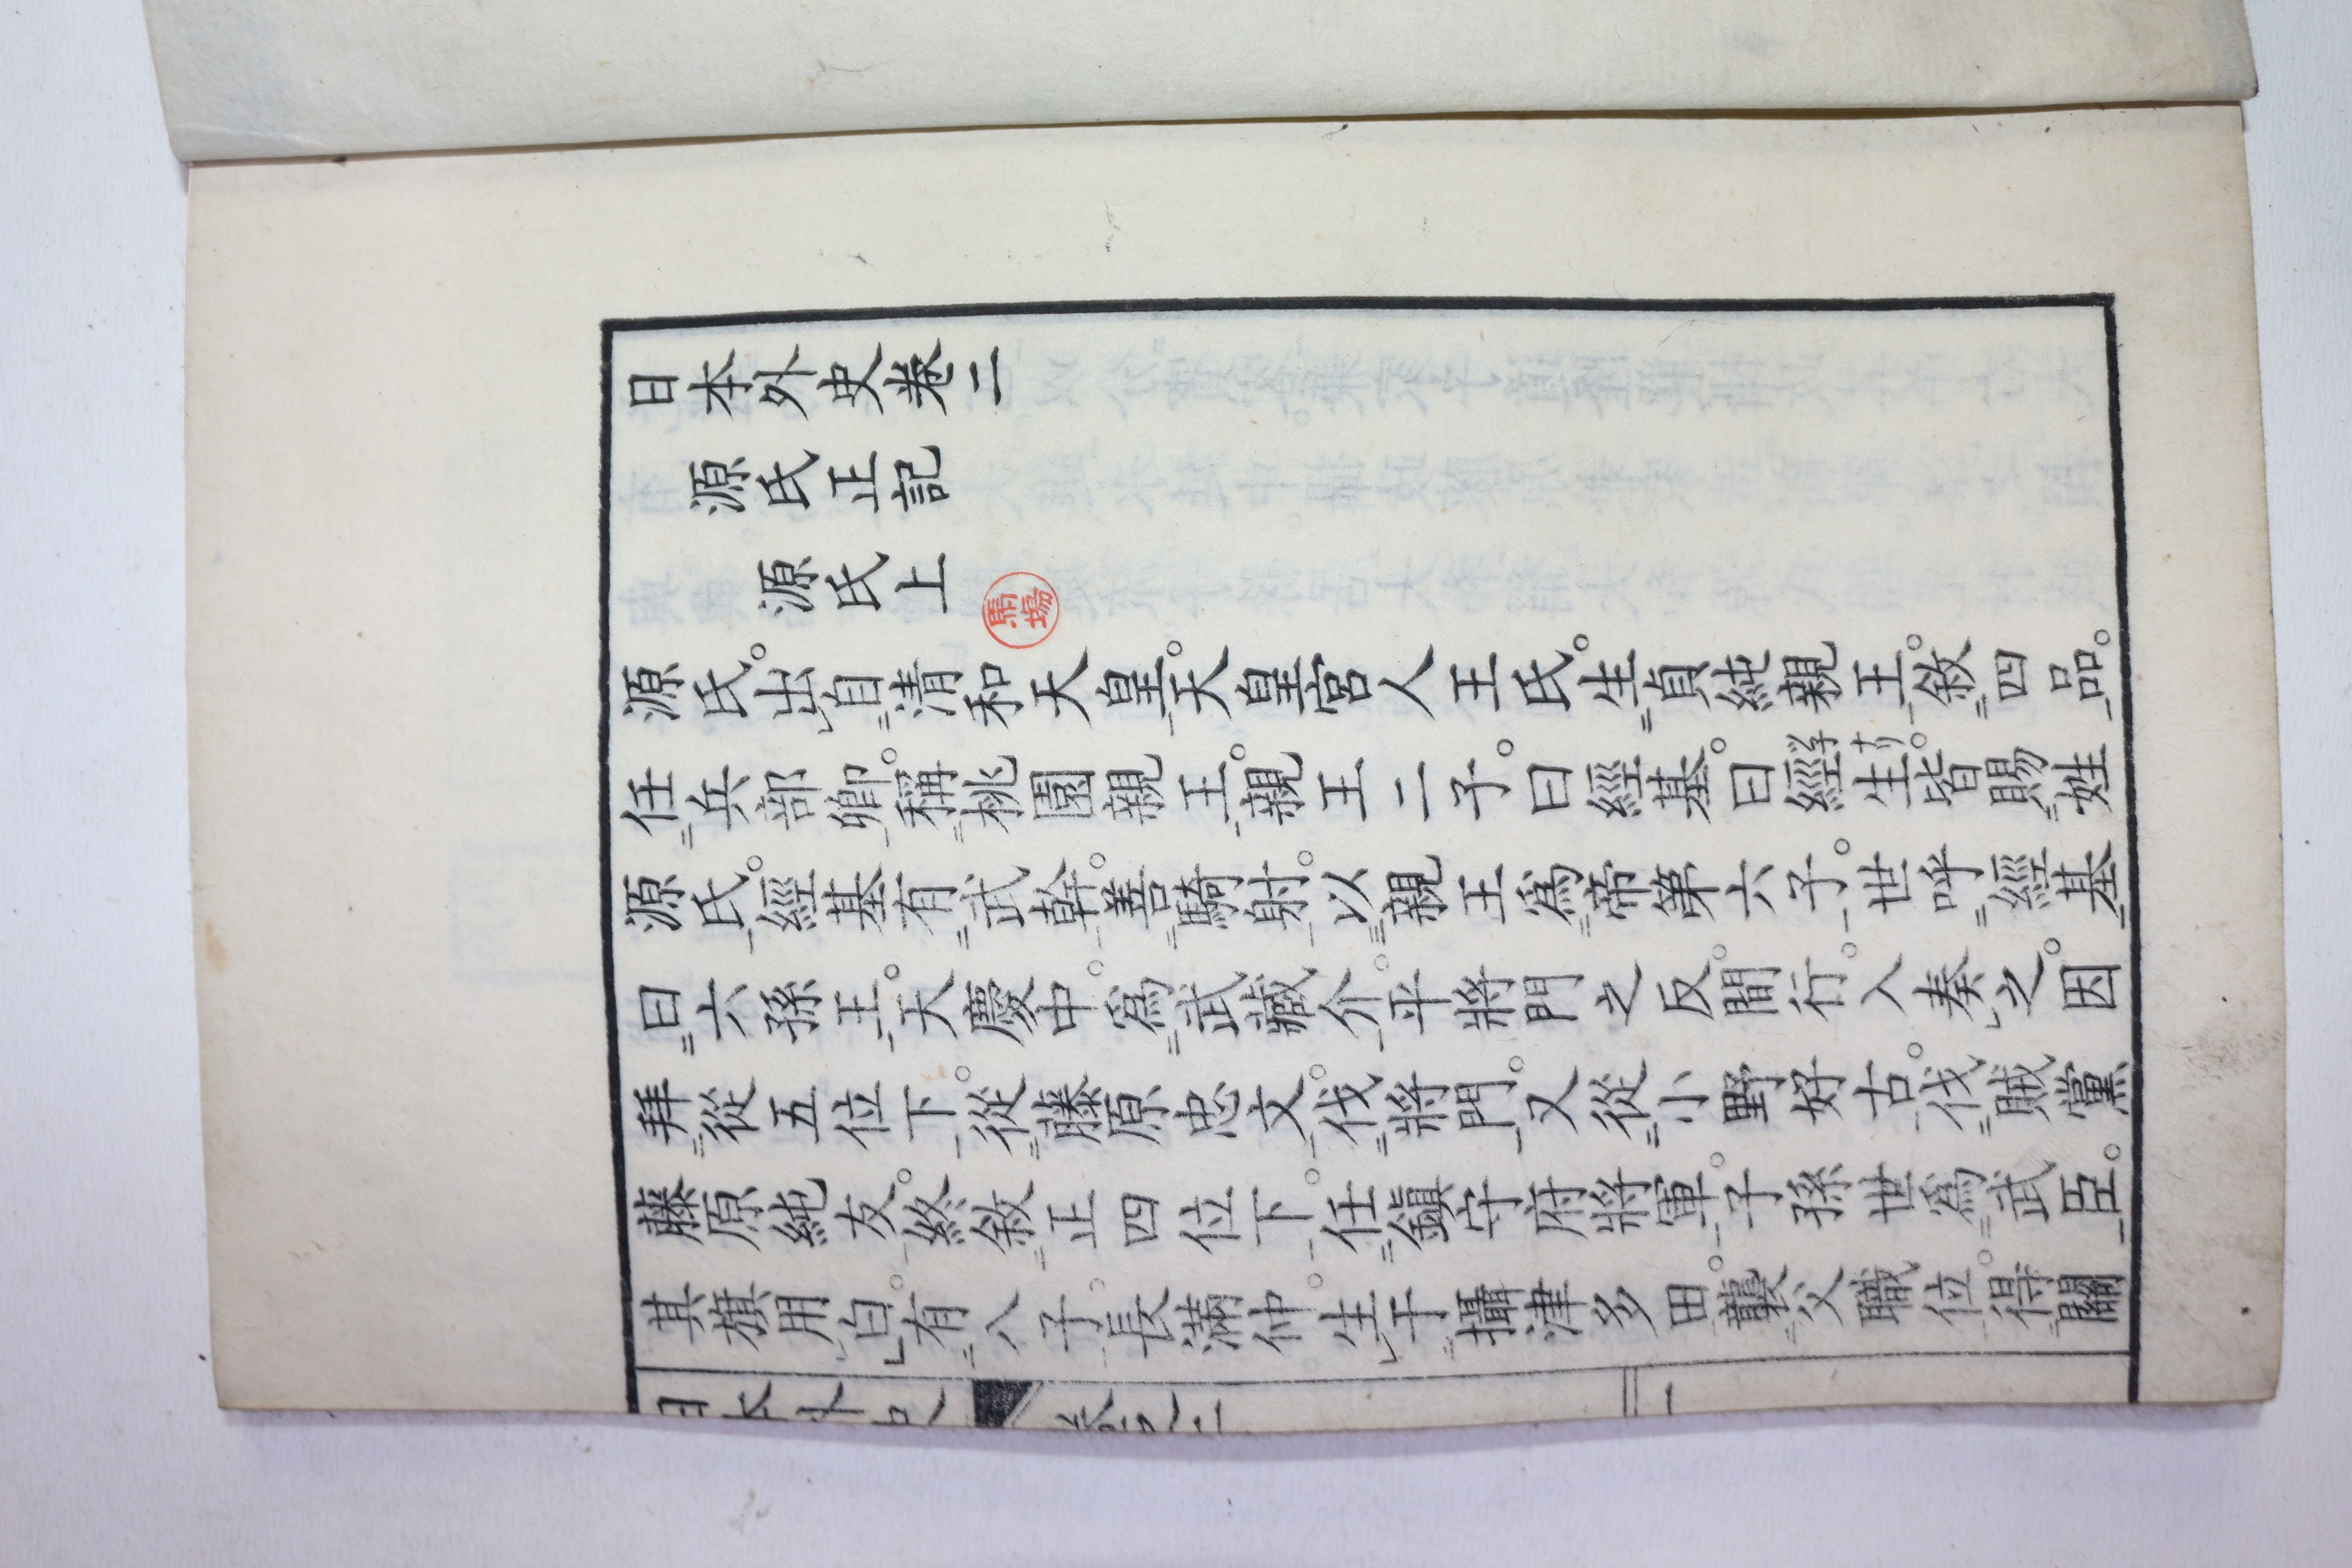 日本外史卷二
源氏正記
源氏上
馬場
源氏。出自清和天皇。天皇宮人王氏。生貞純親王。敘四品。
任兵部卿。稱桃園親王。親王二子。曰經基。曰經生。皆賜姓
源氏。經基有武幹。善騎射。以親王爲帝第六子。世呼經基
曰六孫王。天慶中。爲武藏介。平將門之反。間行。入奏之。因
拜從五位下。從藤原忠文。伐將門。又從小野好古。伐賊黨
藤原純友。終敘正四位下。任鎭守府將軍。子孫世爲武臣。
其旗用白。有八子。長滿仲。生于攝津多田。襲父職位。得關
日本外史 卷之二 一